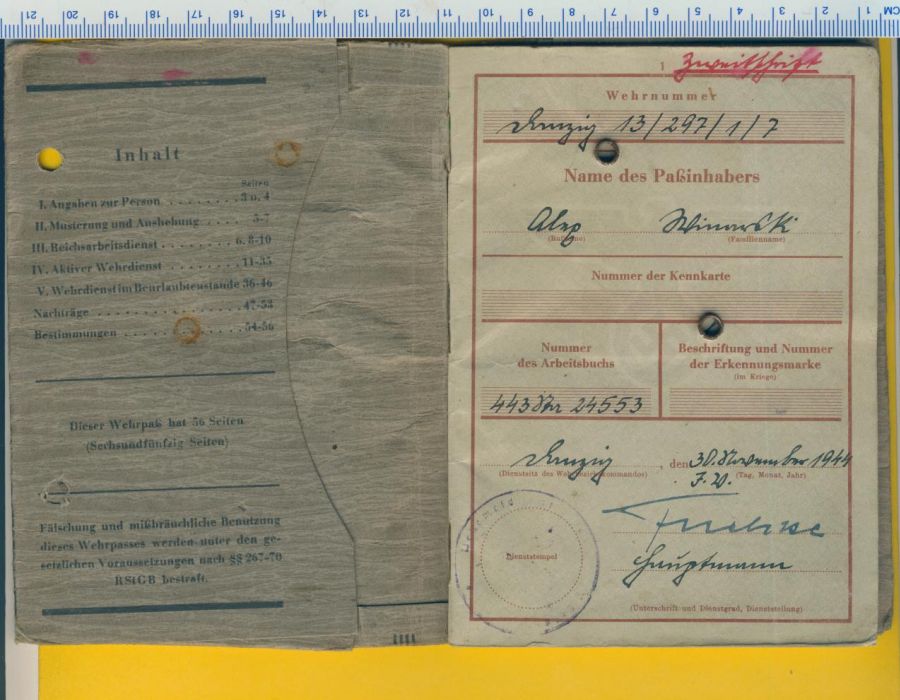 CM 1 2 3 4 5 6 7 8 9 10 11 12 13 14 15 16 17 18 19 20 21
Inhalt
Seiten
I. Angaben zur Person . . . . . . . . . 3 u. 4
II. Musterung und Aushebung . . . . 5-7
III. Reichsarbeitsdienst . . . . . . . . . 6, 8-10
IV. Aktiver Wehrdienst . . . . . . . . 11-35
V. Wehrdienst im Beurlaubtenstande 36-46
Nachträge . . . . . . . . . . . . . . . . 47-53
Bestimmungen . . . . . . . . . . . . . 54-56
Dieser Wehrpaß hat 56 Seiten
(Sechsundfünfzig Seiten)
Fälschung und mißbräuchliche Benutzung
dieses Wehrpasses werden unter den ge-
setzlichen Voraussetzungen nach §§ 267-70
RStGB bestraft.
1 Zweitschrift
Wehrnummer
Danzig 13/297/1/7
Name des Paßinhabers
Winarski
(Rufname) (Familienname)
Nummer der Kennkarte
Nummer
des Arbeitsbuchs
443 24553
Beschriftung und Nummer
der Erkennungsmarke
(im Kriege)
Danzig, den 30. November 1944
(Dienstsitz des Wehrbezirkkommandos) (Tag, Monat, Jahr)
J. V.
Hauptmann
Dienststempel
(Unterschrift und Dienstgrad, Dienststellung)